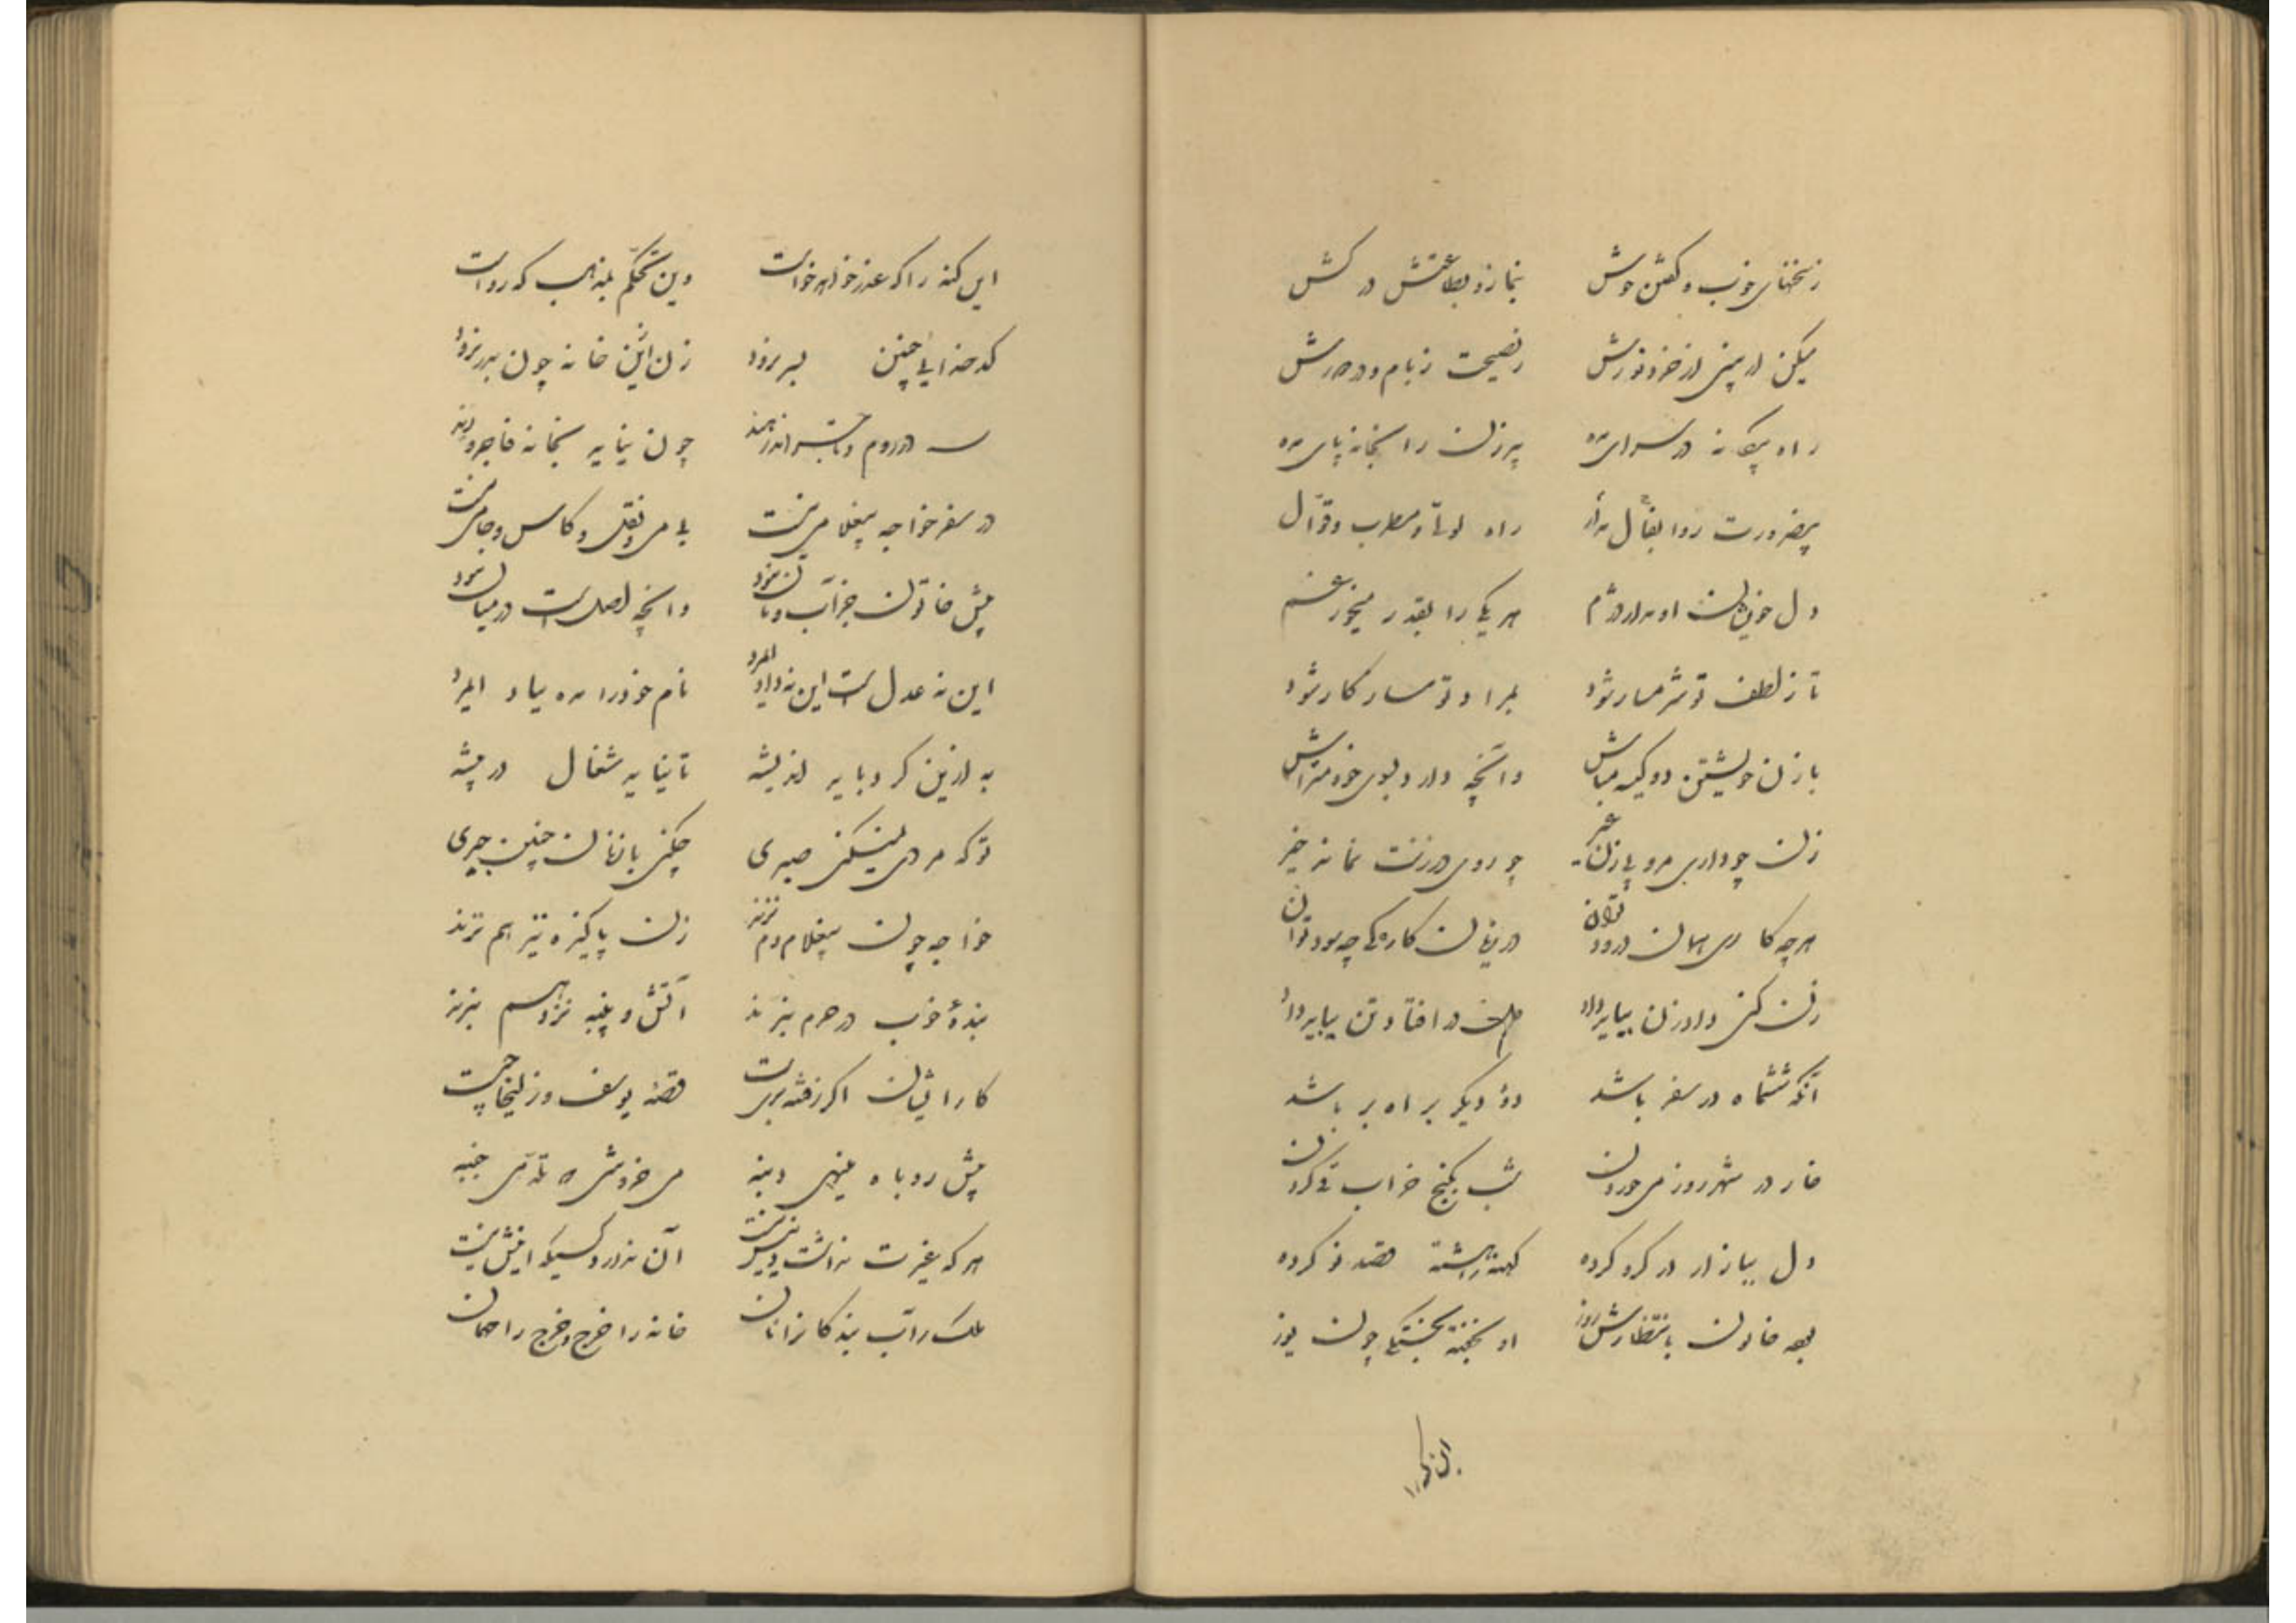 ز سخنهای خوب و گفتن خوش بنماز و بطاعتش درکش
میکن از پیش از خود و نورش نصیحت ز بام و در
راه بیگانه در سرای مده پیرزن را بخانه پای مده
بضرورت روا راه لولی و مطرب و قوال
دل خویشان او مدار دژم هر یکی را بقدر میخور غم
تا ز لطف تو شرمسار شود بمراد تو سازگار شود
با زن خویشتن دو کیسه مباش وآنچه دارد بسوی خود متراش
زن چو داری مرو پی زن غیر چو روی در زنت نماند خیر
هر چه کاری همان درود توان در زیان کارئی چه سود توان
زن کنی داد زن بباید داد در افتاد تن بباید داد
آنکه ششماه در سفر باشد دو دیگر براه بر باشد
خوردن شب بکنج خراب قی کردن
دل ببازار در گرو کرده کهنه را هشته قصد نو کرده
خاتون بانتظارش روز او بخفته بخستگی چون یوز
این گنه را که عذر خواهد خواست وین تحکم بمذهب که رواست
کدخدایی چنین بسر نرود زن ازین خانه چون بدر نرود
در روم و چون نیاید بخانه فاجر و رند
در سفر خواجه بی غلامی نیست بی می و نقل و کاس و جامی نیست
پیش خاتون جز آب و نان نبود وآنچه اصلست در میان نبود
این نه عدل است این نه داد ای مرد نام خود را مده بباد ای مرد
به ازین کرد باید اندیشه تا نیاید شغال در بیشه
تو که مردی نمیکنی صبری چکنی با زنان چنین جبری
خواجه چون بی غلام دم نزند زن پاکیزه نیز هم نزند
بندهٔ خوب در حرم نبرند آتش و پنبه نزد هم نبرند
کار ایشان اگر ز فتنه بریست قصهٔ یوسف و زلیخا چیست
پیش روباه مینهی دنبه می خروشی که میجنبه
هر که غیرت نداشت دینش نیست آن ندارد کسیکه اینش نیست
ملک را آب بندگانند آنان خانه را خرج و خرج را خانان